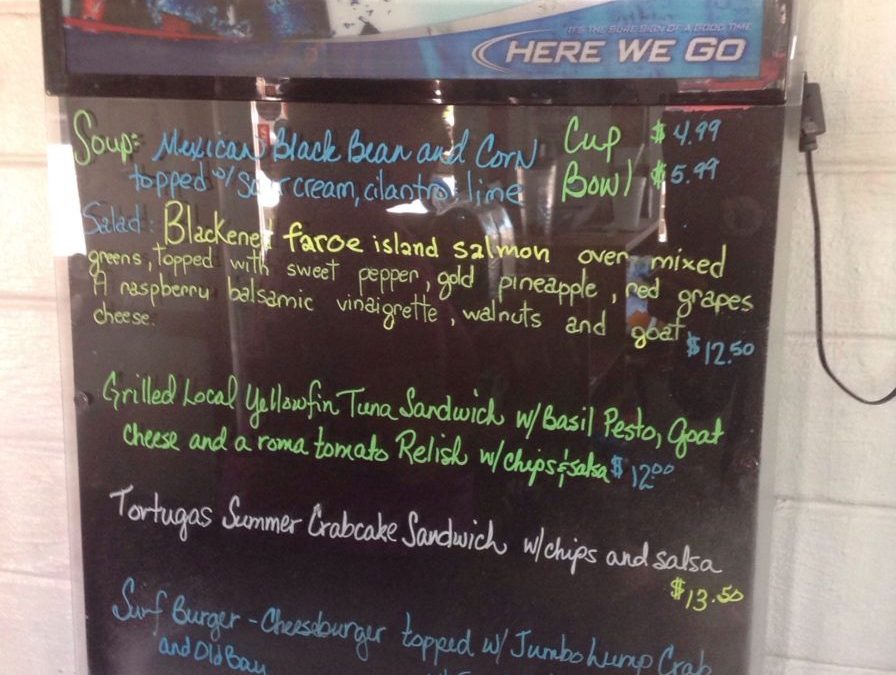 IT'S THE SURE SIGN OF A GOOD TIME
HERE WE GO
Soup: Mexican Black Bean and Corn Cup $4.99
topped w/ sour cream, cilantro lime Bowl $5.99
Salad: Blackened faroe island salmon over mixed
greens, topped with sweet pepper, gold pineapple, red grapes
A raspberry balsamic vinaigrette, walnuts and goat
cheese. $12.50
Grilled Local Yellowfin Tuna Sandwich w/Basil Pesto, Goat
cheese and a roma tomato Relish w/chips & salsa $12.00
Tortugas Summer Crabcake Sandwich w/chips and salsa
$13.50
Surf Burger - Cheeseburger topped w/ Jumbo Lump Crab
and Old Bay